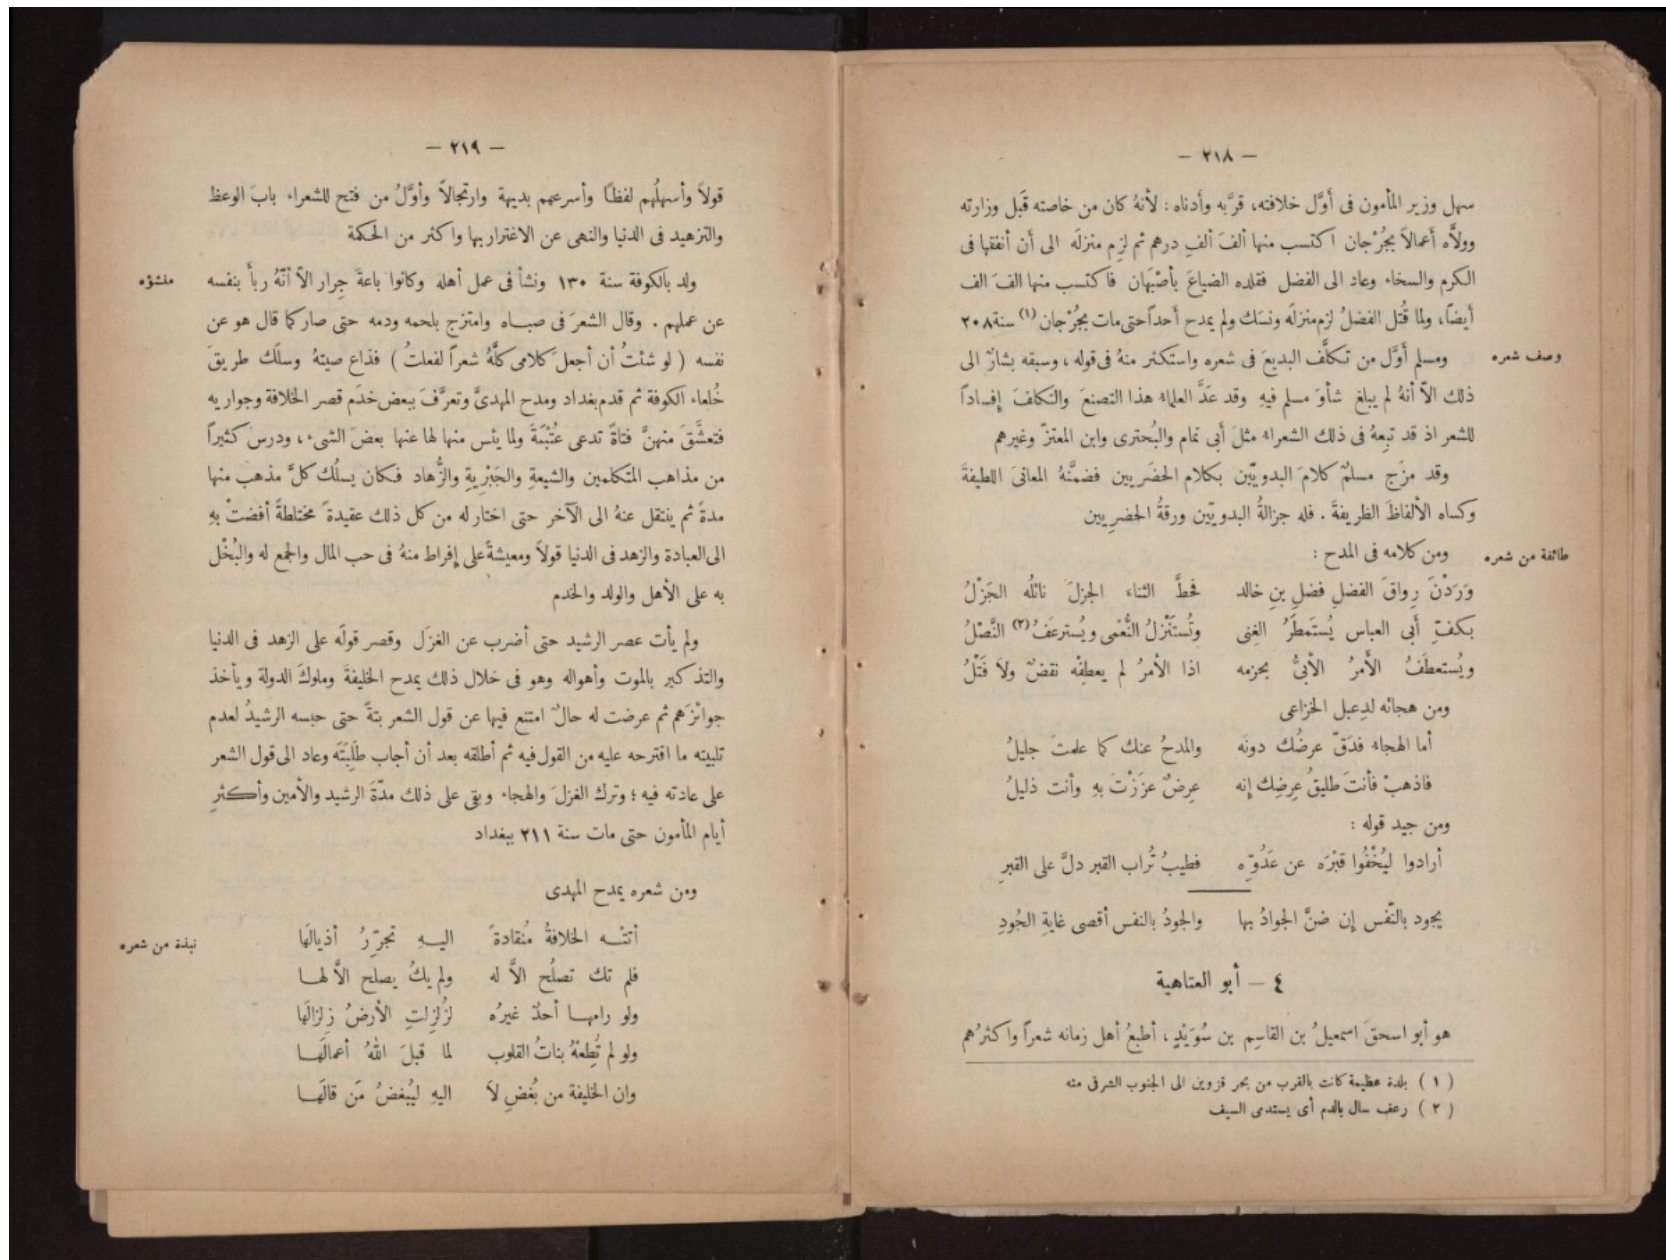 — ٢١٨ —
سهل وزير المأمون فى أوَّل خلافته، قرَّبه وأدناه : لأنهُ كان من خاصته قَبل وزارته
وولاَّه أعمالاً بجُرْجان اكتسب منها ألفَ ألفِ درهم ثم لزِم منزلَه الى أن أنفقها فى
الكرم والسخاء وعاد الى الفضل فقلده الضياعَ بأصْبَهان فاكتسب منها الفَ الف
أيضاً، ولما قُتل الفضلُ لزم منزلَه ونسَك ولم يمدح أحداً حتى مات بجُرْجان (١) سنة ٢٠٨
وصف شعره
ومسلم أوَّل من تكلَّف البديعَ فى شعره واستكثر منهُ فى قوله ، وسبقه بشارٌ الى
ذلك الاّ أنهُ لم يبلغ شأوَ مسلم فيهِ وقد عَدَّ العلماءُ هذا التصنعَ والتكلفَ إفساداً
للشعر اذ قد تبِعهُ فى ذلك الشعراءُ مثلَ أبى تمام والبُحترى وابن المعتزّ وغيرهم
وقد مزَج مسلمٌ كلامَ البدويّين بكلام الحضَريين فضمَّنهُ المعانىَ اللطيفةَ
وكساه الألفاظَ الظريفةَ . فله جزالةُ البدويّين ورقةُ الحضرِيين
طائفة من شعره
ومن كلامه فى المدح :
وَرَدْنَ رِواقَ الفضلِ فضلِ بنِ خالد فحطَّ الثناء الجزلَ نائلُه الجَزْلُ
بكفّ أبى العباس يُستَمطَرُ الغِنى وتُستَنْزلُ النُّعْمى ويُسترعَفُ (٢) النَّصْلُ
ويُستعطَفُ الأَمرُ الأبىُّ بحزمه اذا الأمرُ لم يعطِفْه نقضٌ ولاَ فَتْلُ
ومن هجائه لدِعبل الخزاعى
أما الهجاءُ فدَقّ عرضُك دونَه والمدحُ عنك كما علمتَ جليلُ
فاذهبْ فأنتَ طليقُ عِرضِك إنه عِرضٌ عزَزْتَ بهِ وأنت ذليلُ
ومن جيد قوله :
أرادوا ليُخْفُوا قبْرَه عن عَدُوّه فطيبُ تُراب القبر دلَّ على القبرِ
يجود بالنّفس إن ضنَّ الجوادُ بها والجودُ بالنفس أقصى غايةِ الجُودِ
٤ — أبو العتاهية
هو أبو اسحقَ اسمعيلُ بن القاسِم بن سُوَيْدٍ، أطبعُ أهل زمانه شعراً واكثرُهم
( ١ ) بلدة عظيمة كانت بالقرب من بحر قزوين الى الجنوب الشرقى منه
( ٢ ) رعف سال بالدم أى يستدمى السيف
— ٢١٩ —
قولاً وأسهلُهم لفظاً وأسرعهم بديهة وارتجالاً وأوَّلُ من فتح للشعراء بابَ الوعظ
والتزهيد فى الدنيا والنهى عن الاغتراربها واكثر من الحكمة
منشؤه
ولد بالكوفة سنة ١٣٠ ونشأ فى عمل أهله وكانوا باعةَ جِرار الاّ أنّهُ ربأَ بنفسه
عن عملهم . وقال الشعرَ فى صباه وامتزج بلحمه ودمه حتى صار كما قال هو عن
نفسه ( لو شئتُ أن أجعلَ كلامى كلَّهُ شعراً لفعلتُ ) فذاع صيتهُ وسلَك طريقَ
خُلعاء الكوفة ثم قدم بغداد ومدح المهدىَّ وتعرَّفَ ببعض خدَم قصر الخلافة وجواريه
فتعشَّقَ منهنَّ فتاةً تدعى عُتْبَةَ ولما يئس منها لها عنها بعضَ الشىء، ودرس كثيراً
من مذاهب المتكلمين والشيعةِ والجَبْرِيةِ والزُّهاد فكان يسلُك كلَّ مذهب منها
مدةً ثم ينتقل عنهُ الى الآخر حتى اختار له من كل ذلك عقيدةً مختلطةً أفضتْ بهِ
الى العبادة والزهد فى الدنيا قولاً ومعيشةً على إفراط منهُ فى حب المال والجمع له والبُخْل
به على الأهل والولد والخدم
ولم يأت عصر الرشيد حتى أضرب عن الغزَل وقصر قولَه على الزهد فى الدنيا
والتذكير بالموت وأهواله وهو فى خلال ذلك يمدح الخليفةَ وملوكَ الدولة ويأخذ
جوائزَهم ثم عرضت له حالٌ امتنع فيها عن قول الشعر بتةً حتى حبسه الرشيدُ لعدم
تلبيته ما اقترحه عليه من القول فيه ثم أطلقه بعد أن أجاب طَلِبَتَه وعاد الى قول الشعر
على عادته فيه ؛ وترك الغزلَ والهجاء وبقى على ذلك مدّةَ الرشيد والأمين وأكثرِ
أيام المأمون حتى مات سنة ٢١١ ببغداد
ومن شعره يمدح المهدى
نبذة من شعره
أتتْه الخلافةُ مُنقادةً اليهِ تجرّرُ أذيالَها
فلم تك تصلُح الاَّ له ولم يكُ يصلح الاَّ لها
ولو رامها أحدٌ غيرُه لزُلزِلتِ الأرضُ زِلزالَها
ولو لم تُطِعهُ بناتُ القلوب لما قبلَ اللهُ أعمالَها
وان الخليفة من بُغضِ لاَ اليهِ ليُبغضُ مَن قالَها